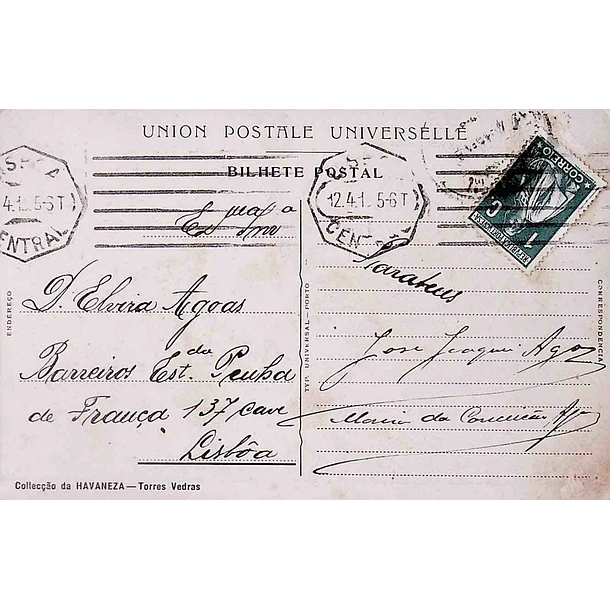 UNION POSTALE UNIVERSELLE
BILHETE POSTAL
4.1. 5-6 T
CENTRAL
12.4.1. 5-6 T
CENT
CORREIO
1 C
Exma
D. Elvira Agoas
Barreiros Est. da Penha
de França 137 cave
Lisbôa
ENDEREÇO
TYP. UNIVERSAL—PORTO
CORRESPONDENCIA
Parabens
José Joaquim Agoas
Maria da Conceição Ag
Collecção da HAVANEZA—Torres Vedras